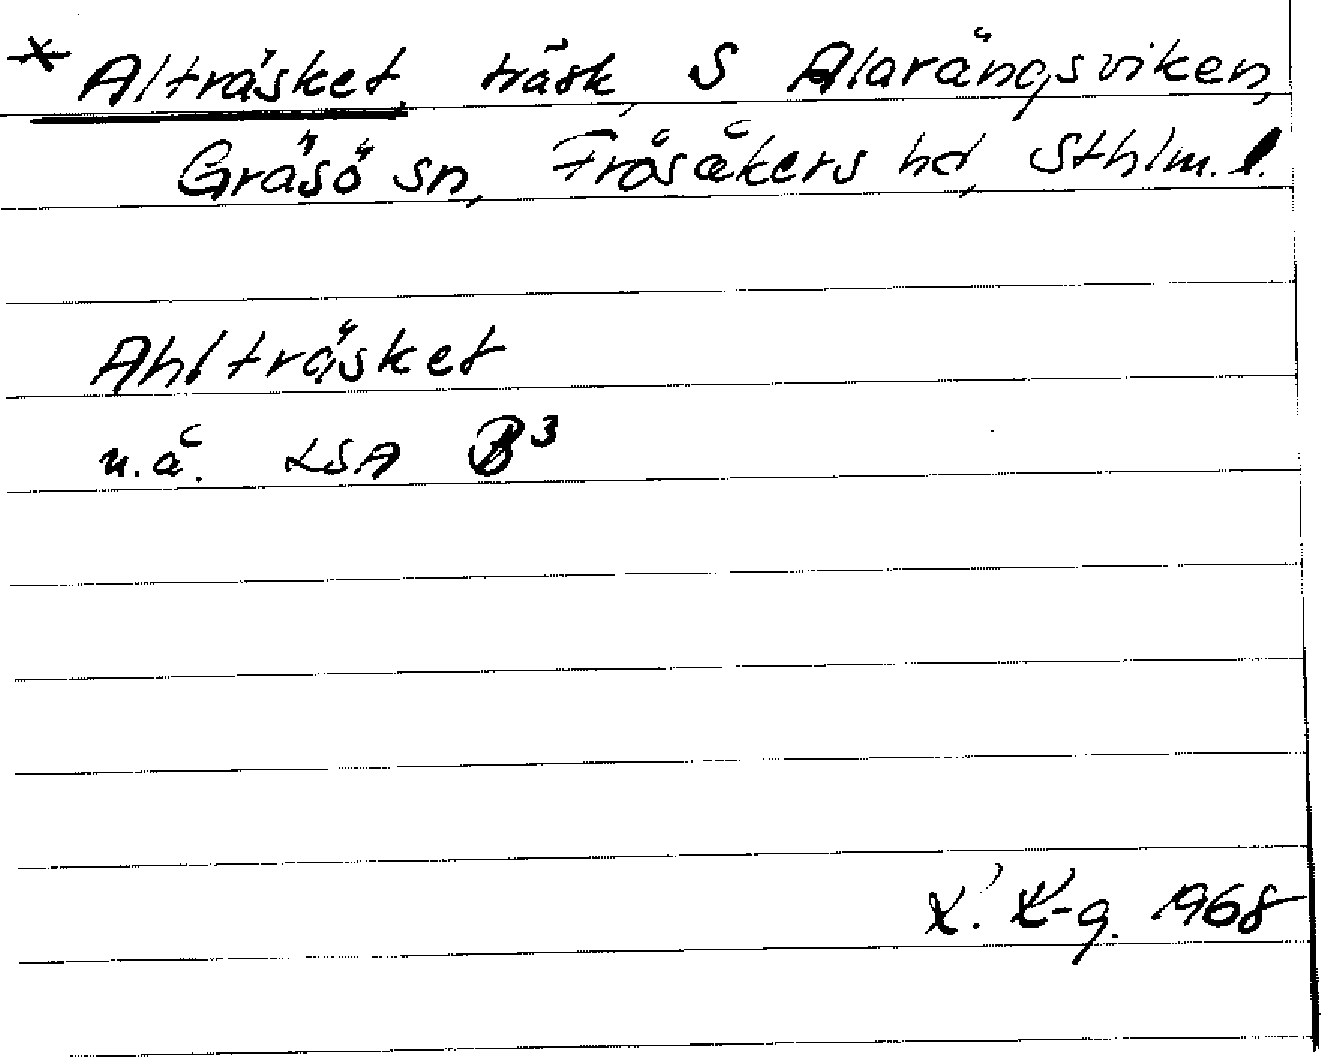 * Alträsket, träsk, S Alarängsviken,
Gräsö sn, Frösåkers hd, Sthlm.l.
Ahlträsket
u.å. LSA B³
K. K-g. 1968